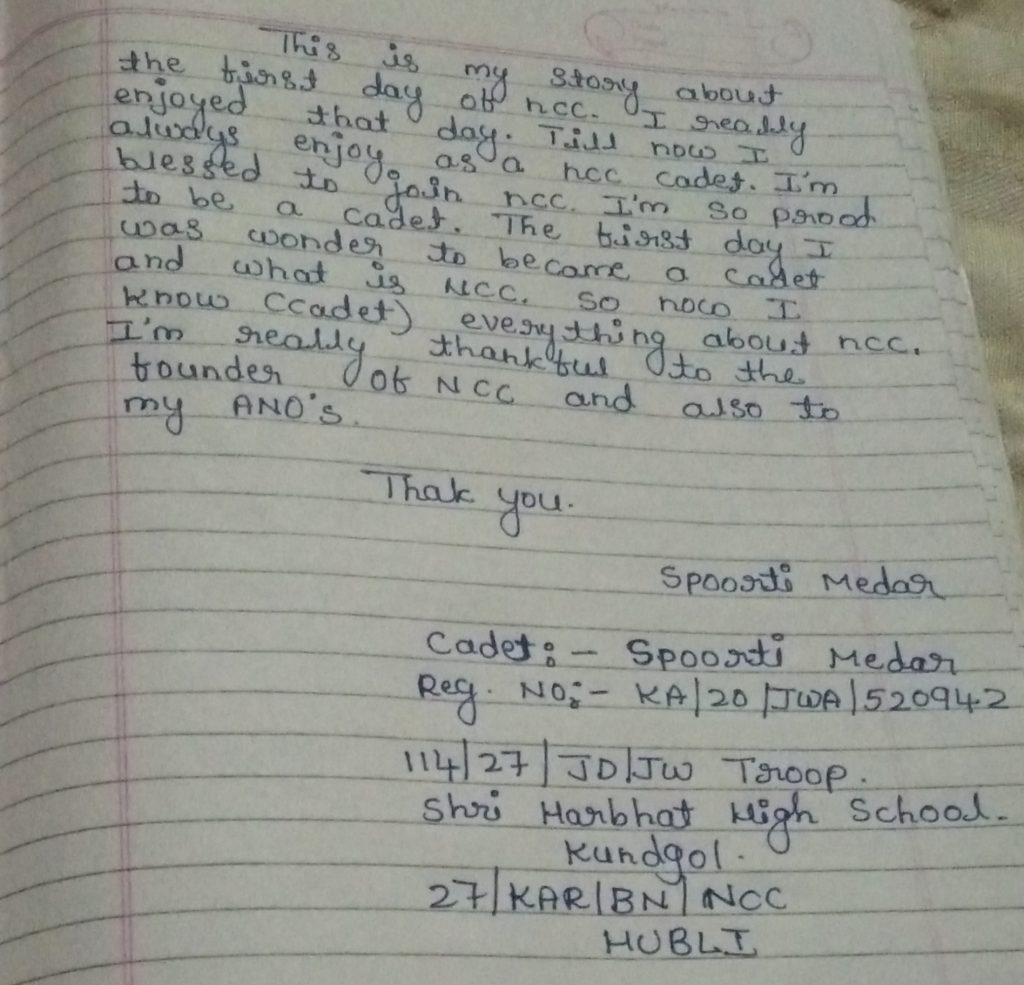 This is my story about
the first day of ncc. I really
enjoyed that day. Till now I
always enjoy as a ncc cadet. I'm
blessed to join ncc. I'm so prood
to be a cadet. The first day I
was wonder to became a cadet
and what is NCC. so now I
know (cadet) everything about ncc.
I'm really thankful to the
founder of NCC and also to
my ANO's.
Thak you.
Spoorti Medar
Cadet:- Spoorti Medar
Reg. NO:- KA/20/JWA/520942
114/27/JD/JW Troop.
Shri Harbhat High School.
Kundgol.
27/KAR/BN/NCC
HUBLI